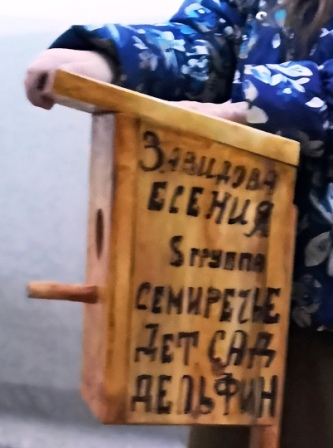 ЗАВИДОВА
ЕСЕНИЯ
5 группа
СЕМИРЕЧЬЕ
ДЕТ САД
ДЕЛЬФИН